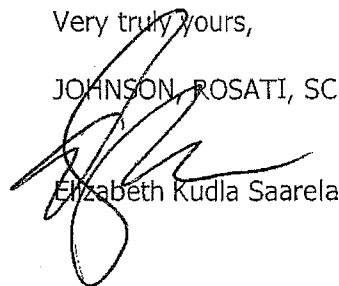 Very truly yours,
JOHNSON, ROSATI, SC
Elizabeth Kudla Saarela